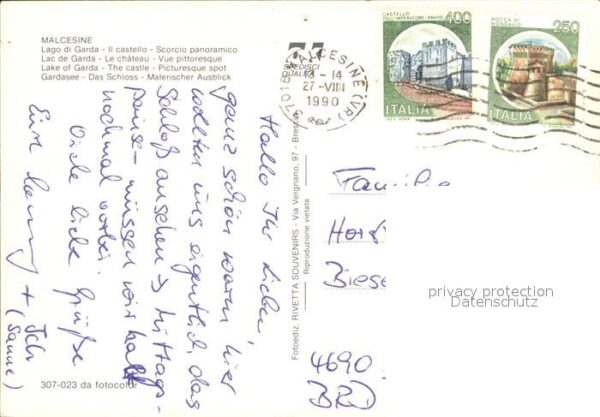 MALCESINE
Lago di Garda - Il castello - Scorcio panoramico
Lac de Garda - Le château - Vue pittoresque
Lake of Garda - The castle - Picturesque spot
Gardasee - Das Schloss - Malerischer Ausblick
SPEDISCI
QUALITÀ
37018 MALCESINE (VR)
13 - 14
27 - VIII
1990
CASTELLO
DELL'IMPERATORE - PRATO
400
ITALIA
ROCCA DI
MONDAVIO
250
ITALIA
Hallo Ihr Lieben,
ganz schön waren hier
wollten uns eigentlich das
Schloß anschauen → Mittags-
pause - müssen wir halt
nochmal vorbei.
Viele liebe Grüße
Eure + Ich
(Sanne)
Fotoediz. RIVETTA SOUVENIRS - Via Vergnano, 97 - Bresc
Riproduzione vietata
Familie
Horst
Biese
4690
BRD
privacy protection
Datenschutz
307-023 da fotocolor